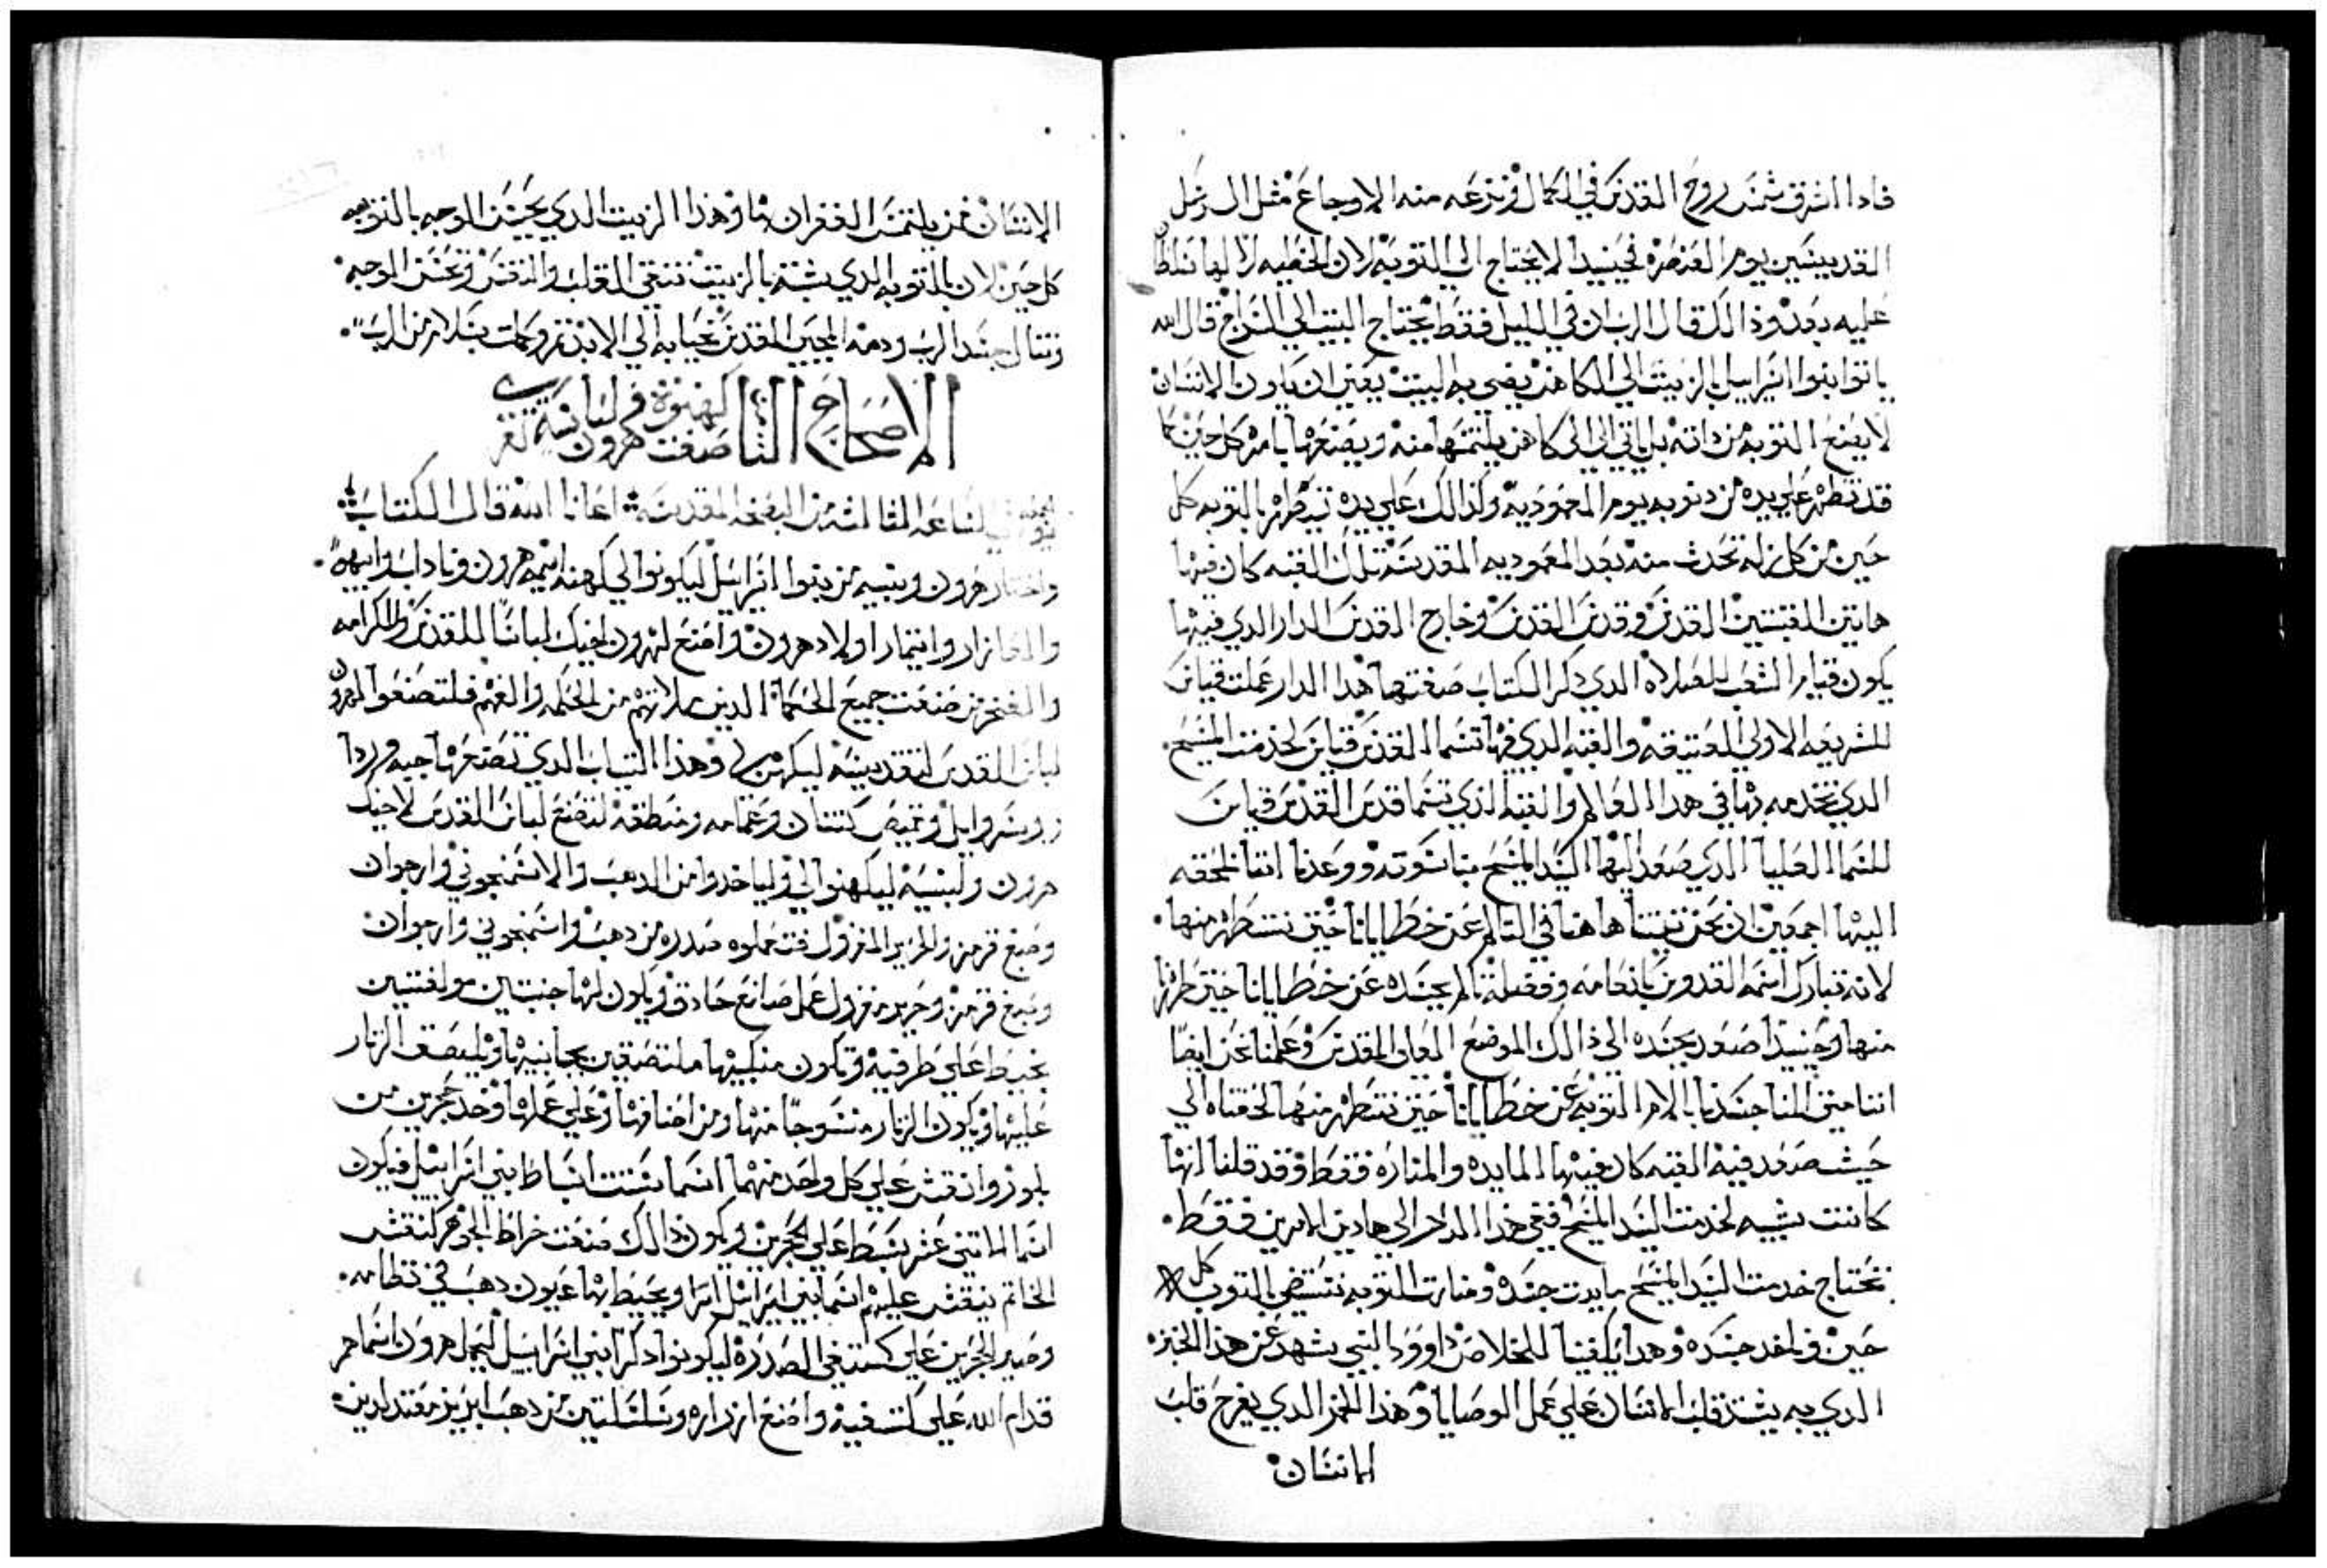 فادا اشرق شمس روح القدس في الكمال ونزعه منه الاوجاع مثل الرسل
القديسين يوم العنصره فحينيدا لا يحتاج الي التوبه لان الخطيه لا لها تسلطا
عليه بعد وذالك قال الرب ان في الليل فقط يحتاج البيت الي السراج قال الله
ياتوا بنوا اسراييل بالزيت الي الكاهن يضى به البيت يعني ان يكون الانسان
لا يصنع التوبه من داته بل ياتي الي الكاهن يلتمسها منه ويصنعها بامره كل حين كما
قد تطهر علي يده من دنوبه يوم المعموديه وكذالك علي يده تيطهر بالتوبه كل
حين من كل زله تحدث منه بعد المعموديه المقدسه تلك القبه كان فيها
هاتين القبتين القدس وقدس القدس وخارج القدس الدار الدي فيها
يكون قيام الشعب للصلاه الدي دكر الكتاب صفتها هدا الدار عملت قياس
للشريعه الاولي العتيقه والقبه الدي فيها تسما القدس قياس لخدمت المسيح
الدي نخدمه بها في هدا العالم والقبه الذي تسما قدس القدس قياس
للسما العليا الدي صعد اليها السيد المسيح بناسوته ووعدنا اننا نلحقه
اليها اجمعين ان نحن تبنا هاهنا في التالم عن خطايانا حين نتطهر منها
لانه تبارك اسمه القدوس بانعامه وفضله تالم بجسده عن خطايانا حين طهرنا
منها وحينيدا صعد بجسده الي ذالك الموضع العالى المقدس وعلمنا نحن ايضا
اننا متي المنا جسدنا بالام التوبه عن خطايانا حين نتطهر منها لحقناه الي
حيث صعد فيه القبه كان فيها المايده والمناره فقط وقد قلنا انها
كانت تشبيه لخدمت السيد المسيح ففي هدا المدكر الي هادين الامرين فقط
نحتاج خدمت السيد المسيح مايدت جسده ومنارت التوبه نستضي بالتوب كل
حين وناخد جسده وهدا يكفينا للخلاص داوود النبي يشهد عن هدا الخبز
الدي به يشتد قلب الانسان علي عمل الوصايا وهدا الخمر الدي يفرح قلب
الانسان
الانسان من يلتمس الغفران بها وهذا الزيت الدي يحسن الوجه بالتوبه
كل حين لان بالتوبه الدي يشبه بالزيت تنقي القلب والنفس وتحسن الوجه
وتنال جسد الرب ودمه المحيي المقدس نحيا به الي الابد تم وكملت بسلام من الرب
الاصحاح الثامن
صفت كهنوة هرون
يوم في الساعه الثالثه من البصخه المقدسه اعاننا الله قال الكتاب
واختار هرون وبنيه من بنوا اسراييل ليكونوا لي كهنه اسمه هرون وناداب وابيهو
والعازار وايتمار اولاد هرون واصنع لهرون اخيك لباسا للقدس والكرامه
والفخر من صنعت جميع الحكما الدين ملاتهم من الحكمه والفهم فلتصنعوا لهرون
لباس القدس لتقديسه ليكهن لي وهذا التياب الدي تصنعها جبه ورردا
وسراويل وقميص كتان وعمامه ومنطقه لتصنع لباس القدس لاخيك
هرون ولبنيه ليكهنوا لي ولياخدوا من الدهب والاسمنجوني وارجوان
وصبغ قرمز والحرير المغزول فتعملوه صدره من دهب واسمنجوني وارجوان
وصبغ قرمز وحرير مغزول عمل صانع حادق ويكون لها جنبتين مولفتين
بخيط علي طرفيه وتكون منكبيها ملتصقين بجانبيها ويلصق الزنار
عليها ويكون الزنار منسوجا منها ومن اصنافها وعلي عملها وخد حجرين من
بلور وانقش علي كل واحد منهما اسما ستت اسباط بني اسراييل فيكون
اسما الاتنى عشر سبط علي الحجرين ويكون ذالك صنعت خراط الجوهر كنقش
الخاتم ينقش عليهم اسما بني اسراييل ويحيط بها عيون دهب في نظامه
وصير الحجرين علي كتفي الصدره ليكونوا دكر لبني اسراييل ليحمل هرون اسماهم
قدام الله علي كتفيه واصنع ازراره وسلسلتين من دهب ابريز معتدلين